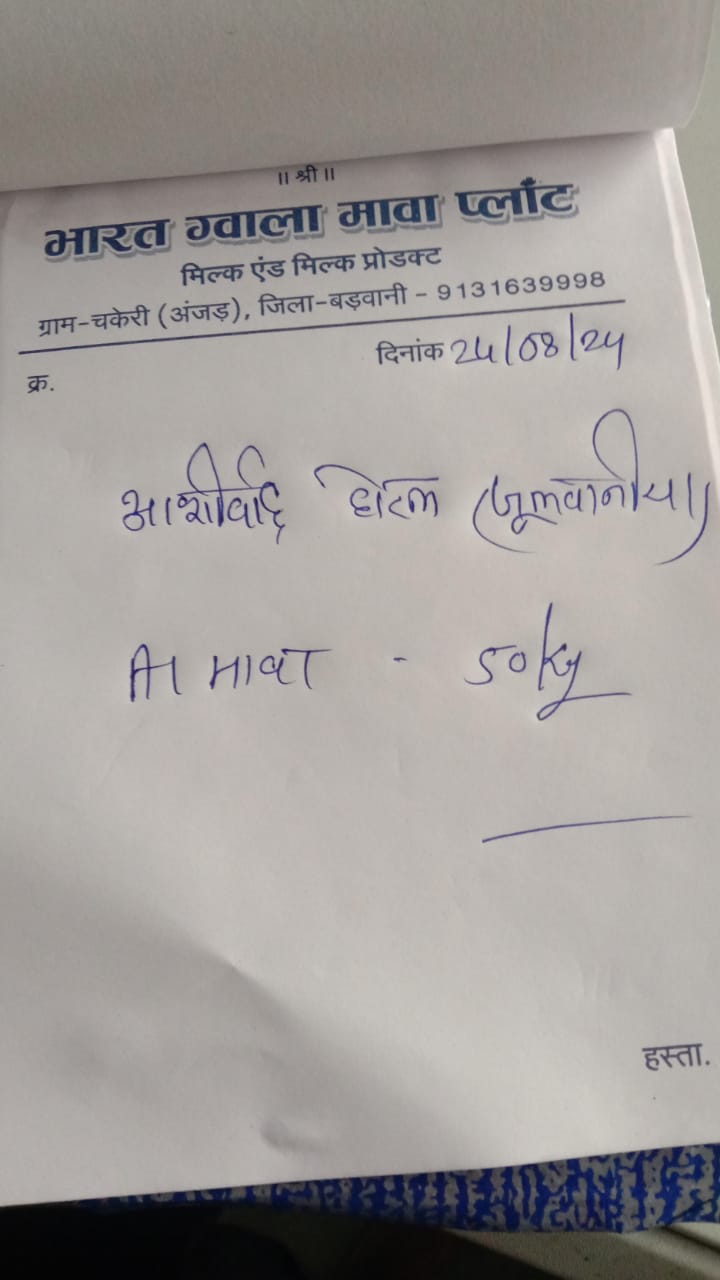 ॥ श्री ॥
भारत ग्वाला मावा प्लाँट
मिल्क एंड मिल्क प्रोडक्ट
ग्राम-चकेरी (अंजड़), जिला-बड़वानी - 9131639998
दिनांक 24/08/24
क्र.
आशीर्वाद होटल (जूलवानीया)
मावा - 50kg
हस्ता.